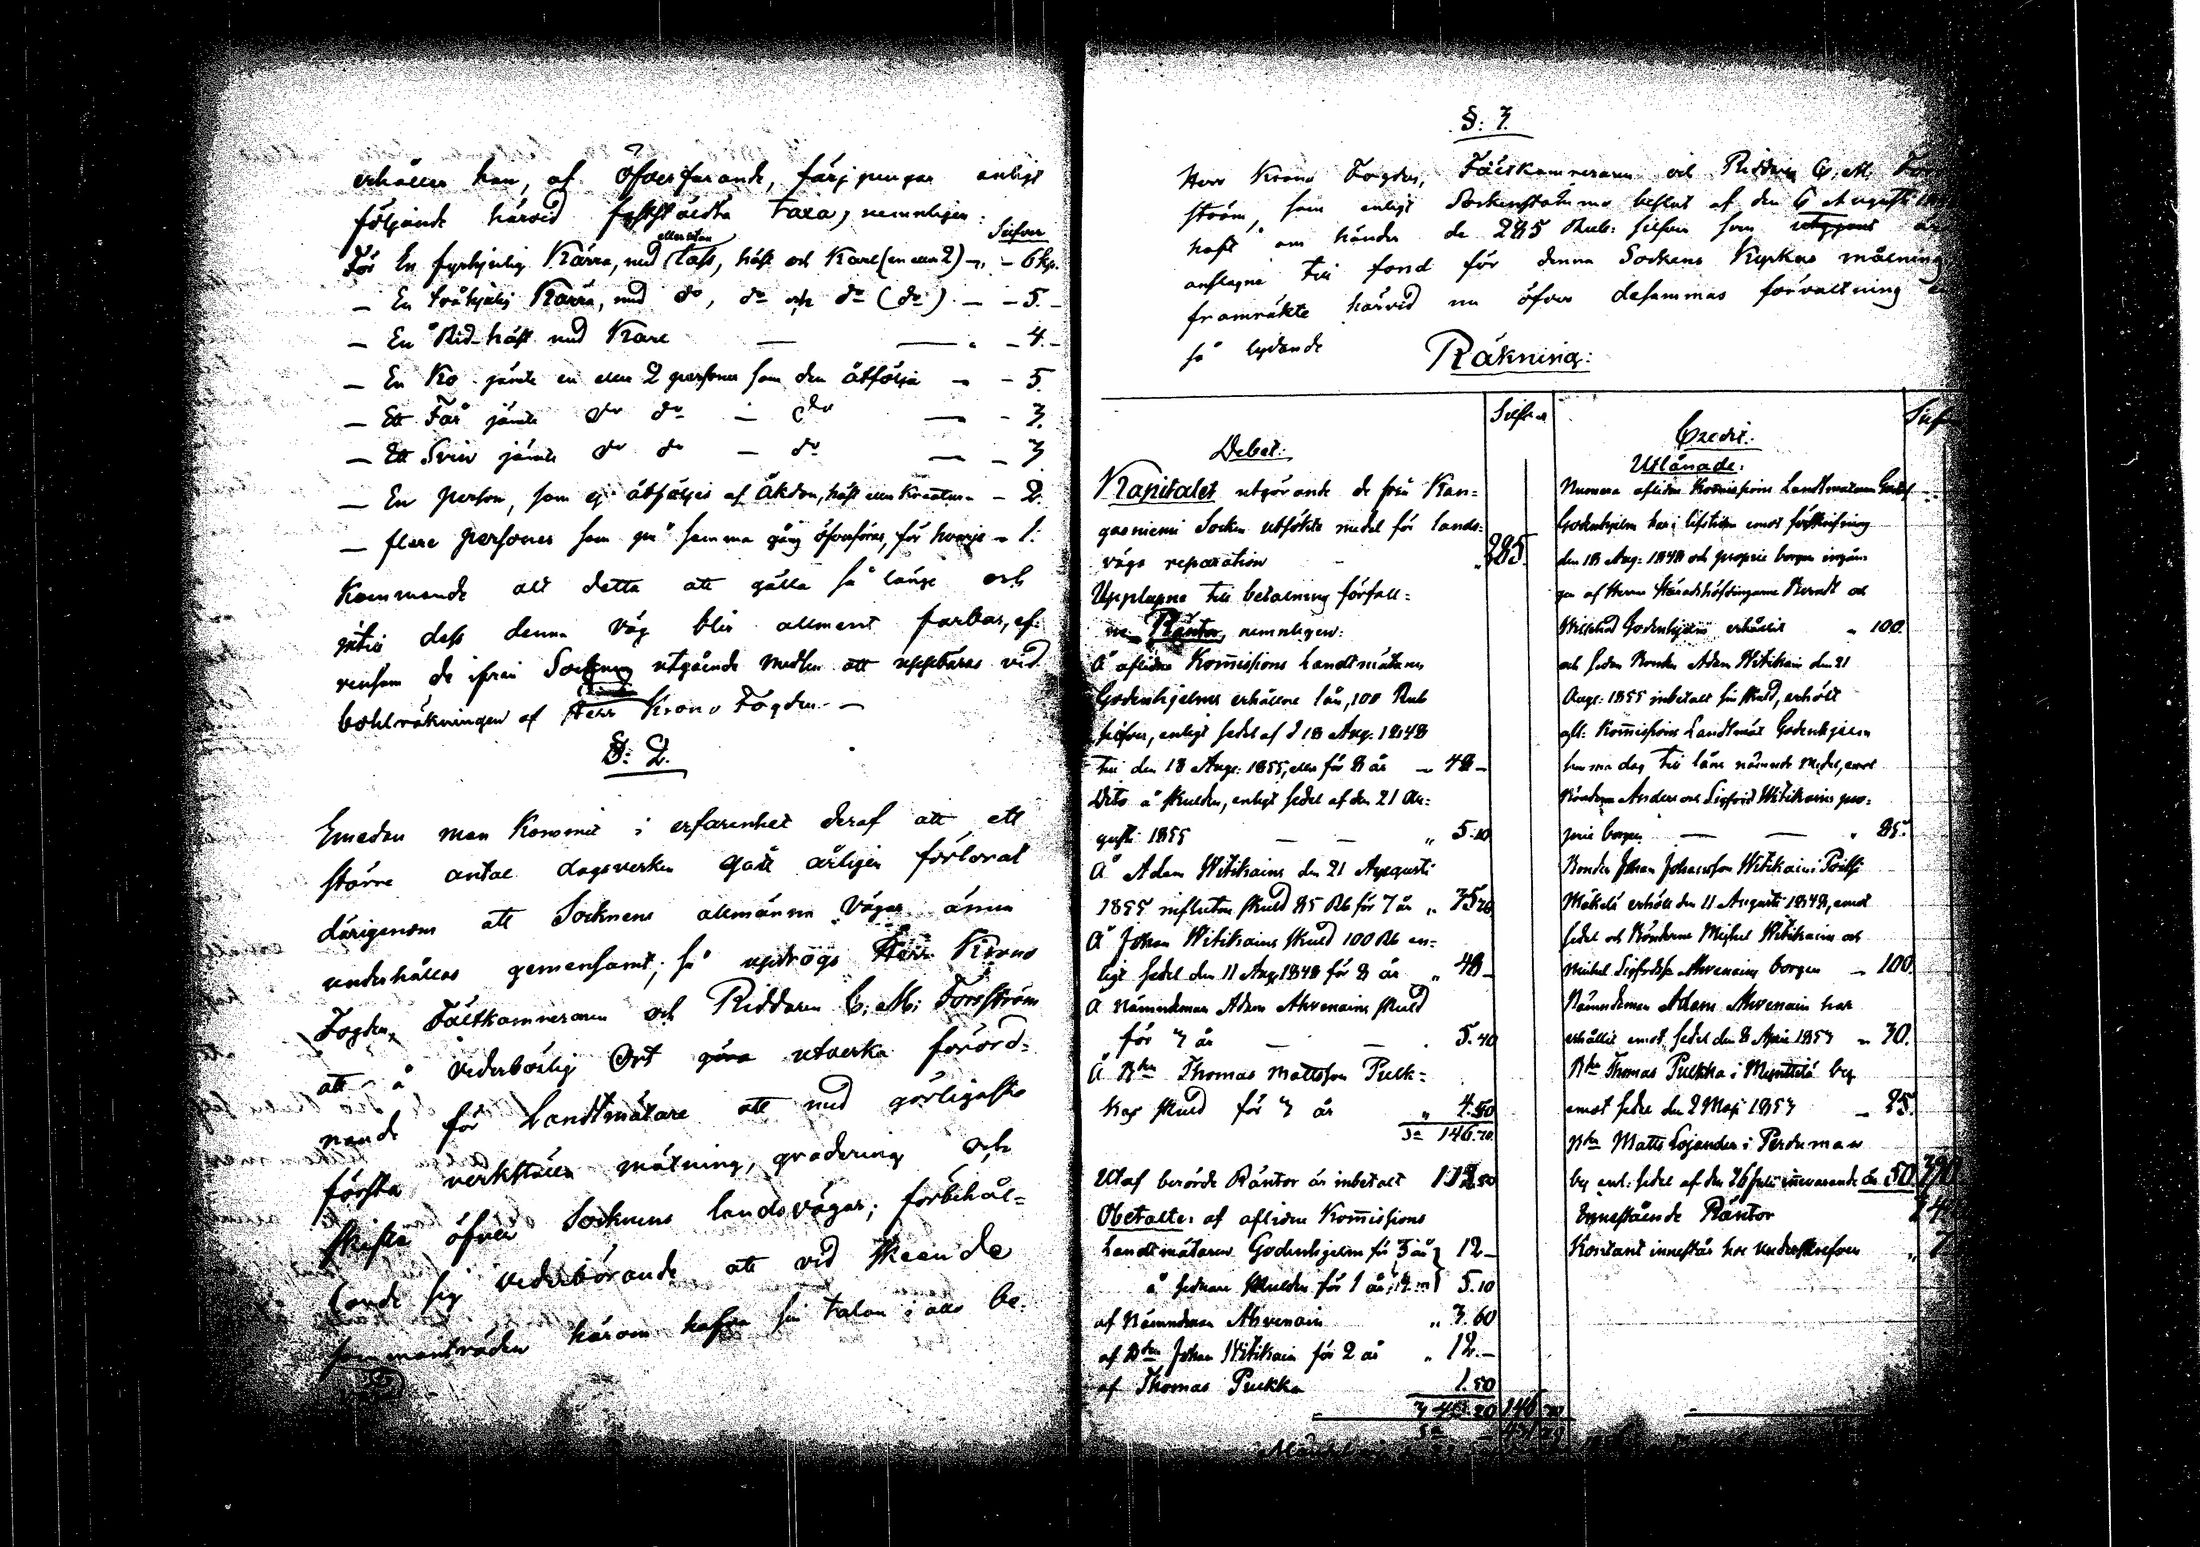 erhåller han, af Öfverfarande, färjpengar enligt
följande härvid fastställda taxa, nemnligen:
Silfver
eller utan
För En fyrhjulig Kärra, med lass, häst och Karl (en eller 2) -„ - 6 kp.
— En tvåhjulig Kärra, med do, do och do (do) — - 5.-
— En Rid-häst med Karl — — - 4.-
— En Ko jämte en eller 2 personer som den åtfölja — - 5.
— Ett Får jämte do do — do — - 3.
— Ett Svin jämte do do — do — - 3
— En person, som ej åtföljes af Åkdon, häst eller Kreatur - 2.
— flere personer som på samma gång öfverföras, för hvarje - 1.
Kommande allt detta att gälla så länge och
intill dess denna väg blir allment farbar,
de ifrån Socknen utgående medlen att uppbäras vid
bohlräkningen af Herr Krono Fogden. —
§: 2.
Emedan man kommit i erfarenhet deraf att ett
större antal dagsverken gått årligen förlorat
därigenom att Socknens allmänna Vägar ännu
underhållas gemensamt; så updrogs Herr Krono
Fogden, Fältkamreraren och Riddaren C. M. Forsström
att å vederbörlig Ort göra utverka förord-
nande för Landtmätare att med görligaste
första verkställa mätning, gradering och
skifta öfver Socknens landsvägar; förbehål-
lande sig vederbörande att vid skeende
sammanträden härom hafva sin talan i allo be-
§: 3.
Herr Krono Fogden, Fältkamreraren och Riddaren C. M. Fors
ström, som enligt Sockenstämmo beslut af den 6 Augusti
haft om händer de 285 Rub: silfver som
anslagne till fond för denna Sockens Kyrkas målning
framräkte härvid nu öfver desammas förvaltning en
så lydande
Räkning:
Silfver
Silf
Debet.
Kapitalet utgörande de från Kan-
gasniemi Socken utsökte medel för lands-
vägs reparation - „ 285.
Upplupne till betalning förfall-
ne Räntor, nemnligen:
Å aflidne Komissions Landtmätaren
Godenhjelms erhållne lån, 100 Rub
silfver, enligt sedel af d 18 Aug. 1848
till den 18 Aug: 1855, eller för 8 år - 48 -
Dito å skulden, enligt sedel af den 21 Au-
gusti 1855 — — „ 5.10
Å Adam Witikains den 21 Augusti
1855 influtna skuld 85 Rb för 7 år „ 35.70
Å Johan Witikains skuld 100 Rb en-
ligt sedel den 11 Aug. 1848 för 8 år „ 48 -
Å Nämndeman Adam Ahvenains skuld
för 3 år — - . 5.40
Å Bden Thomas Mattsson Pulk-
kas skuld för 3 år „ 4.50
Sa 146.70
Utaf berörde Räntor är inbetalt 112.50
Obetalte: af aflidne Komissions
Landtmätaren Godenhjelm för 3 år 12 -
å sednare skulden för 1 år 5.10
af Nämndeman Ahvenain „ 3.60
af Bden Johan Witikain för 2 år „ 12.-
af Thomas Pulkka 1.50
146 70
Sa 431 70
Credit.
Utlånade:
Numera aflidne Komissions Landtmätaren Gustaf
Godenhjelm har i lifstiden emot förskrifning
den 18 Aug: 1848 och proprie borgen ingån-
gen af Herrar Häradshöfdingarne Berndt och
Wilhelm Godenhjelm erhållit „ 100.
och sedan Bonden Adam Witikain den 21
Aug: 1855 inbetalt sin skuld, erhölt
afl: Komissions Landtmät Godenhjelm
samma dag till låns nämnde medel, emot
Bönderna Anders och Sigfrid Witikains pro-
prie borgen — — „ 85.
Bonden Johan Johansson Witikain i
Mäkelä erhölt den 11 Augusti 1848, emot
sedel och Bönderne Mickel Witikains och
Mickel Sigfridss: Ahvenains borgen - 100
Nämndeman Adam Ahvenain har
erhållit emot sedel den 8 April 1853 - 30.
Bden Thomas Pulkka i Mynttilä by
emot sedel den 2 Maji 1853 - 25.
Bden Matts Lojander i
by enl: sedel af den 26 Juli innevarande år 50 390
Innestående Räntor
Kontant innestår hos undertecknad „